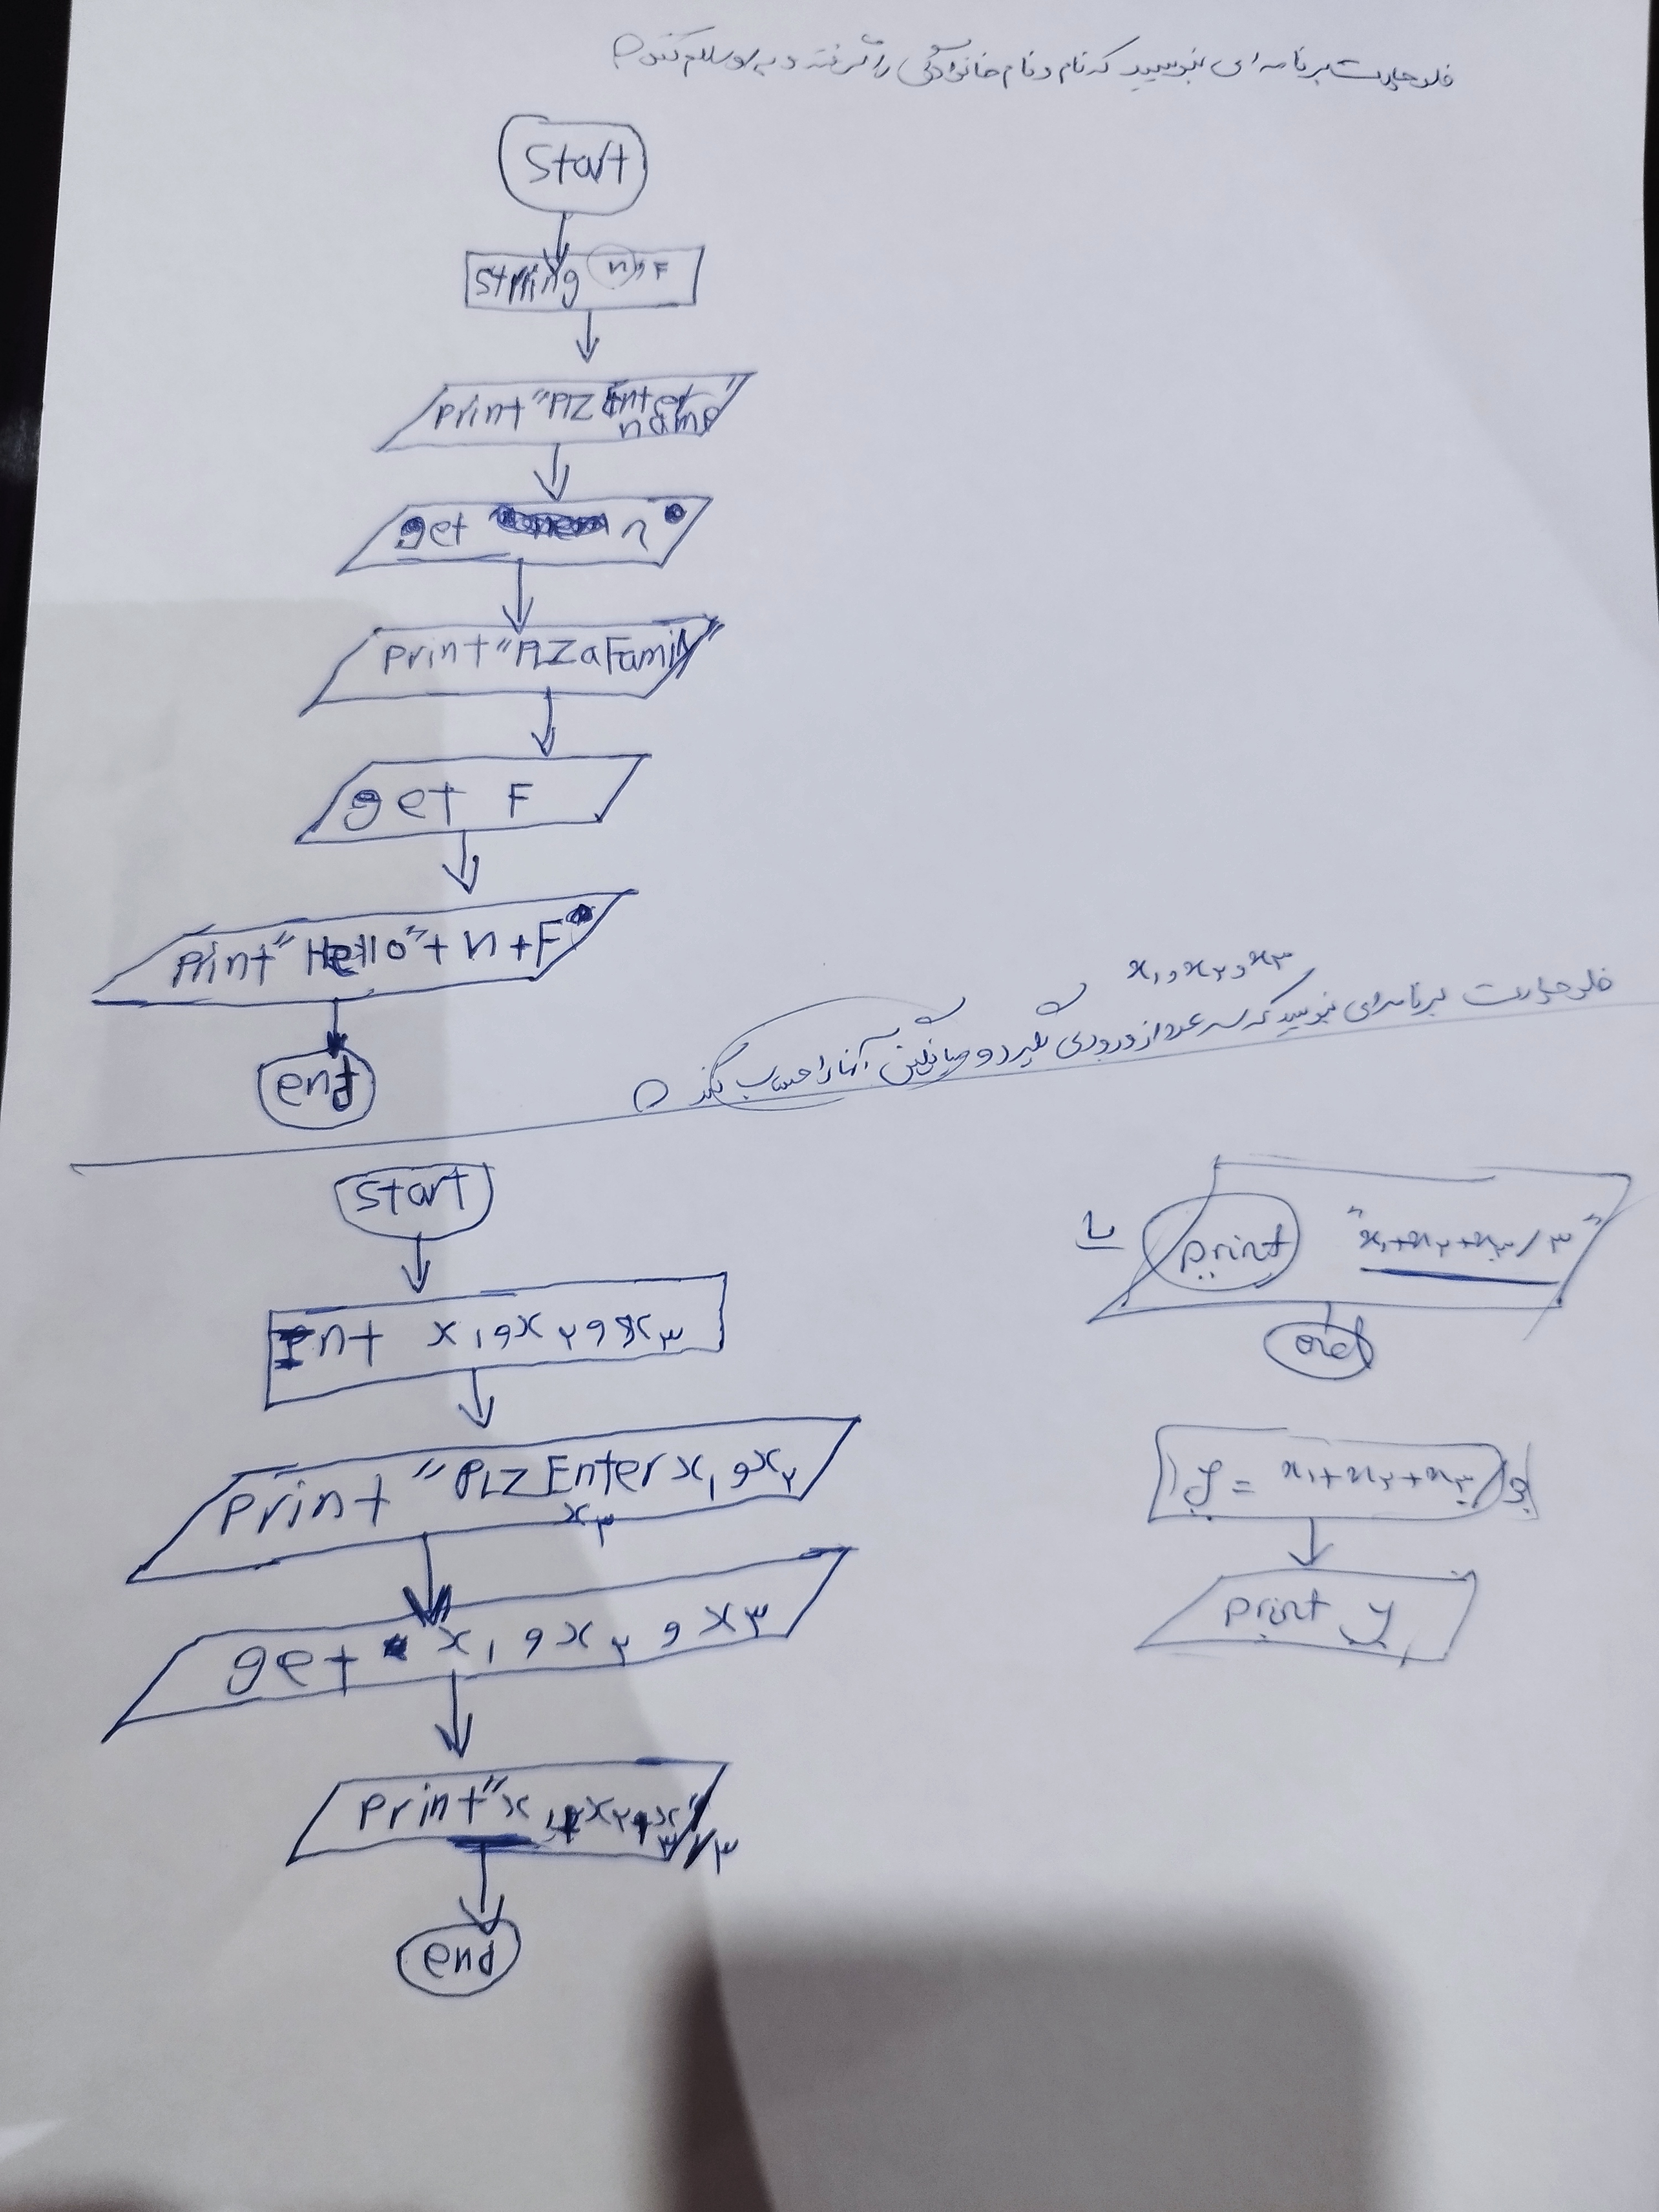 فلوچارت برنامه ای بنویسید که نام و نام خانوادگی را گرفته و به او سلام کند
Start
string n, F
print "PLZ Enter
name"
get n
print "PLZ a Family"
get F
print "Hello" + n + F
end
x۱, x۲, x۳
فلوچارت برنامه ای بنویسید که سه عدد از ورودی بگیرد و میانگین آنها را حساب کند
start
Int x۱, x۲, x۳
print "PLZ Enter x۱, x۲
x۳
get x۱, x۲, x۳
print "x۱+x۲+x۳"/۳
end
یا
print "x۱+x۲+x۳/۳"
end
y = x۱+x۲+x۳/۳
print y